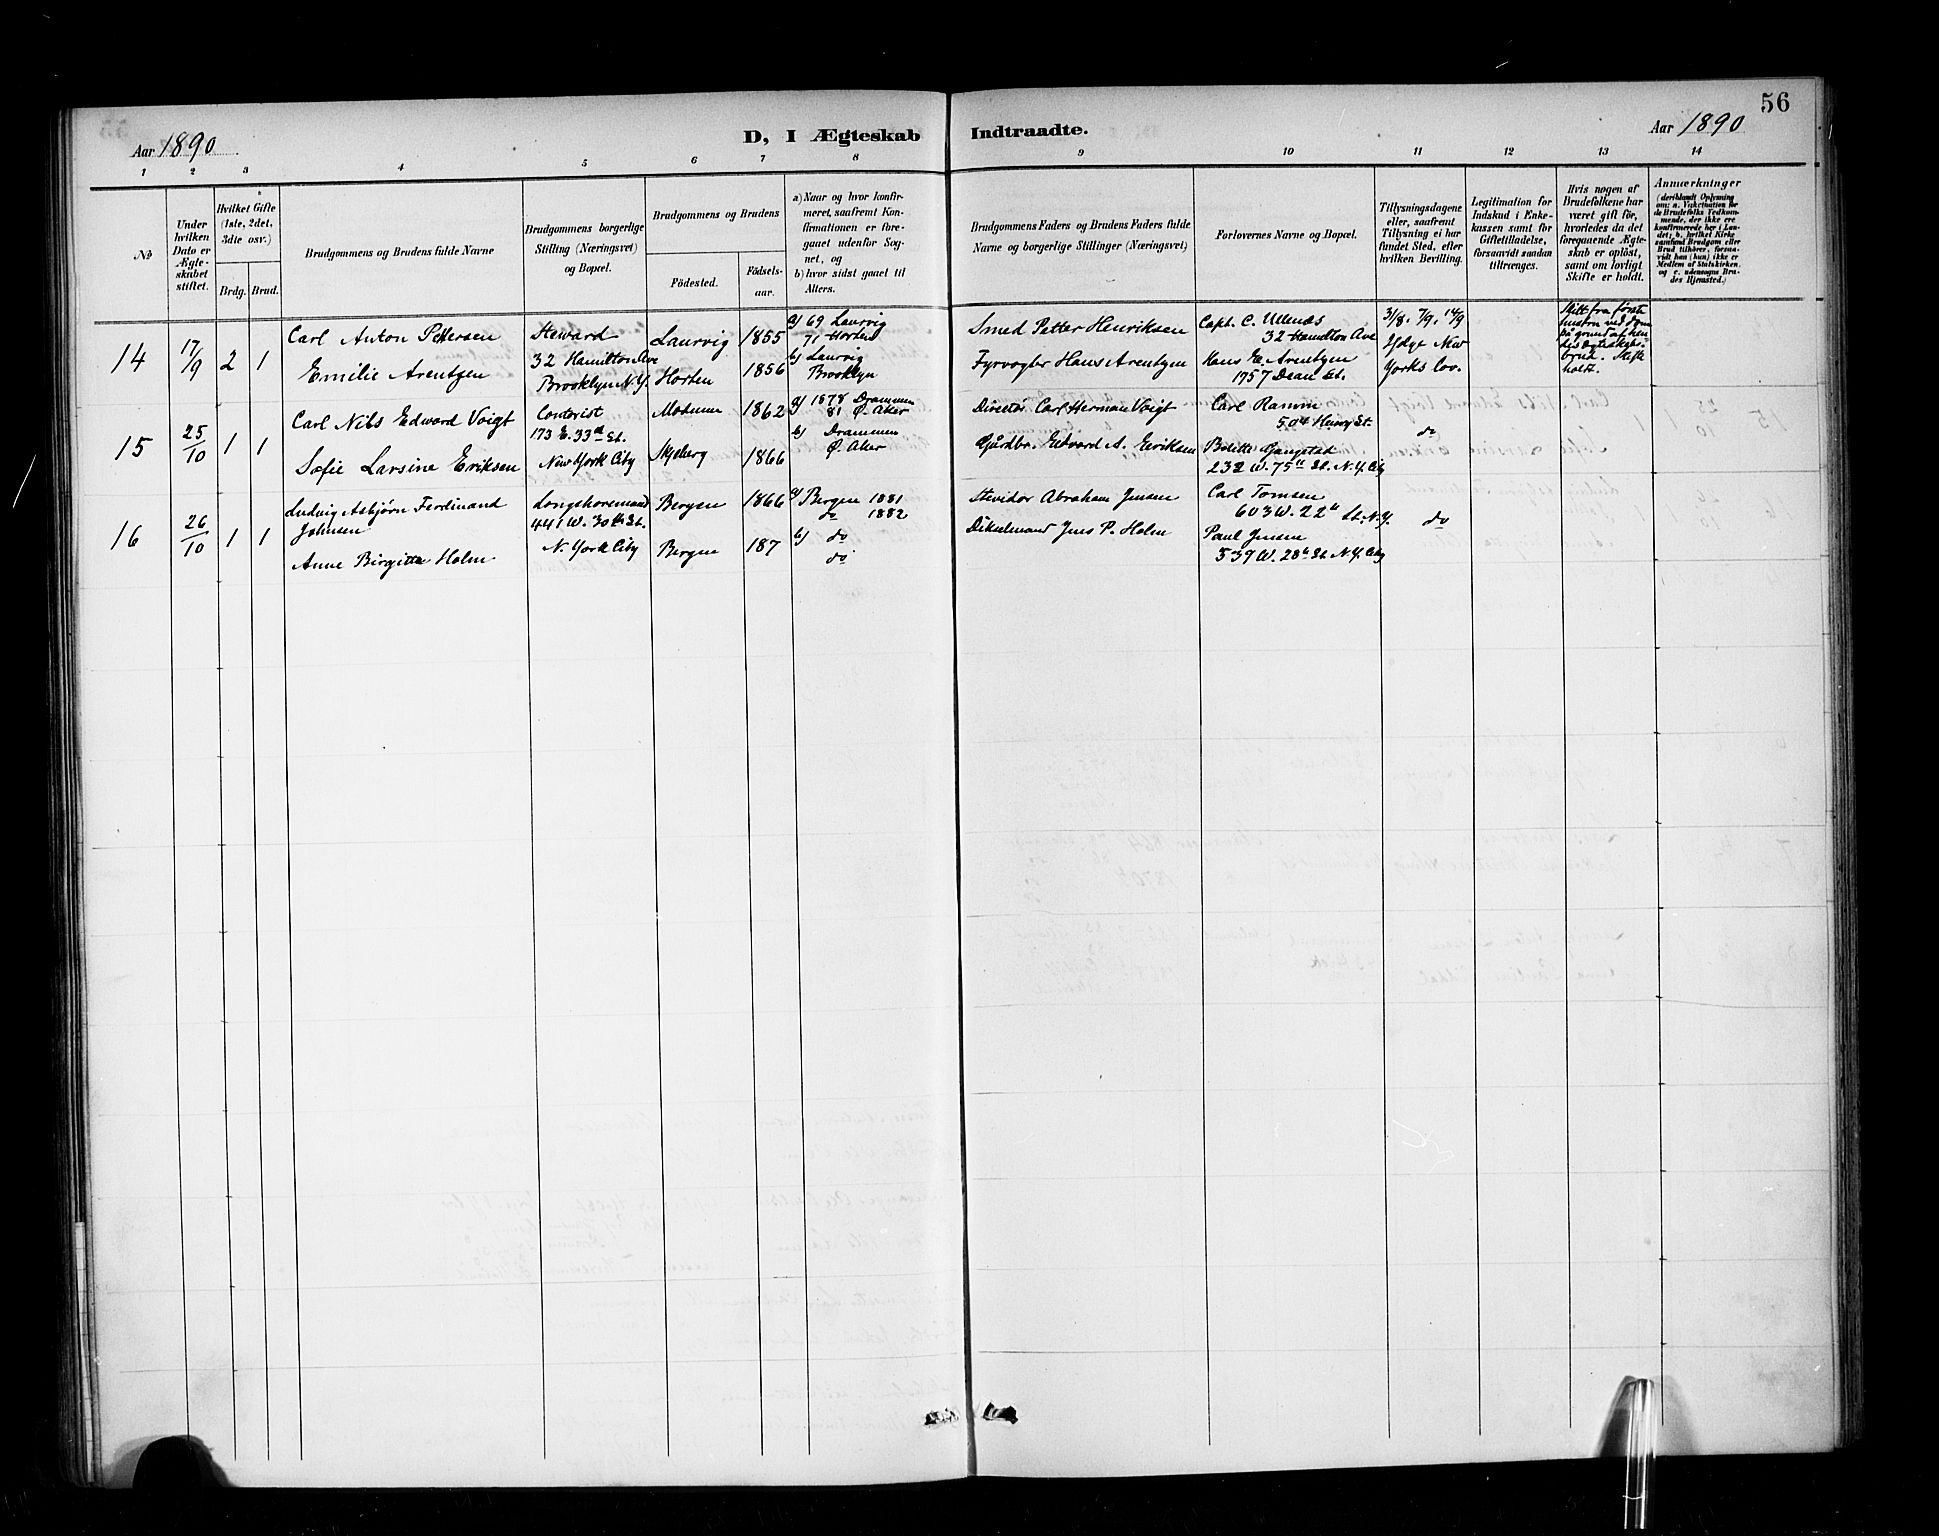 56
Aar 1890
D, I Ægteskab Indtraadte.
Aar 1890
1 2 3 4 5 6 7 8 9 10 11 12 13 14
№
Under hvilken Dato er Ægteskabet stiftet.
Hvilket Gifte (1ste, 2det, 3die osv.)
Brdg. Brud.
Brudgommens og Brudens fulde Navne
Brudgommens borgerlige Stilling (Næringsvei) og Bopæl.
Brudgommens og Brudens
Födested.
Födselsaar.
a) Naar og hvor konfirmeret, saafremt Konfirmationen er foregaaet udenfor Sognet, og
b) hvor sidst gaaet til Alters.
Brudgommens Faders og Brudens Faders fulde Navne og borgerlige Stillinger (Næringsvei)
Forlovernes Navne og Bopæl.
Tillysningsdagene eller, saafremt Tillysning ei har fundet Sted, efter hvilken Bevilling.
Legitimation for Indskud i Enkekassen samt for Giftetilladelse, forsaavidt saadan tiltrænges.
Hvis nogen af Brudefolkene har været gift för, hvorledes da det foregaaende Ægteskab er oplöst, samt om lovligt Skifte er holdt.
Anmærkninger
(deriblandt Oplysning om: a. Vakcination for de Brudefolks Vedkommende, der ikke ere konfirmerede her i Landet; b. hvilket Kirkesamfund Brudgom eller Brud tilhörer, forsaavidt han (hun) ikke er Medlem af Statskirken, og c. udensogns Brudes Hjemsted.)
14 17/9 2 1
Carl Anton Pettersen
Emilie Arentzen
Steward
32 Hamilton Ave
Brooklyn N.Y.
Laurvig 1855
Horten 1856
a) 69 Laurvig
71 Horten
b) Laurvig
Brooklyn
Smed Petter Henriksen
Fyrvogter Hans Arentzen
Capt. C. Ullenæs
32 Hamilton Ave
Hans E. Arentzen
1757 Dean St.
31/8, 7/9, 14/9
Ifølge New
Yorks Lov.
Skilt fra første
hustru ved dom
på grund af hen
des ægteskabs-
brud. Skifte
holdt.
15 25/10 1 1
Carl Nils Edward Voigt
Sofie Larsine Eriksen
173 E. 33rd St.
New York City
Modum 1862
Skjeberg 1866
a) 1878 Drammen
81 Ø. Aker
b) Drammen
Ø. Aker
Director Carl Herman Voigt
Gårdbr. Edvard A. Eeriksen
Carl Ramm
504 Henry St.
Bolette Gangstad
232 W. 75th St. N.Y. City
do
16 26/10 1 1
Ludvig Asbjørn Ferdinand
Johnsen
Anne Birgitte Holm
Longshoremand
441 W. 30th St.
N. York City
Bergen 1866
Bergen 187
a) Bergen 1881
do 1882
b) do
do
Stevidor Abraham Jensen
Dikselmand Jens P. Holm
Carl Tomsen
603 W. 22d St. N.Y.
Paul Jensen
539 W. 28th St. N.Y. City
do